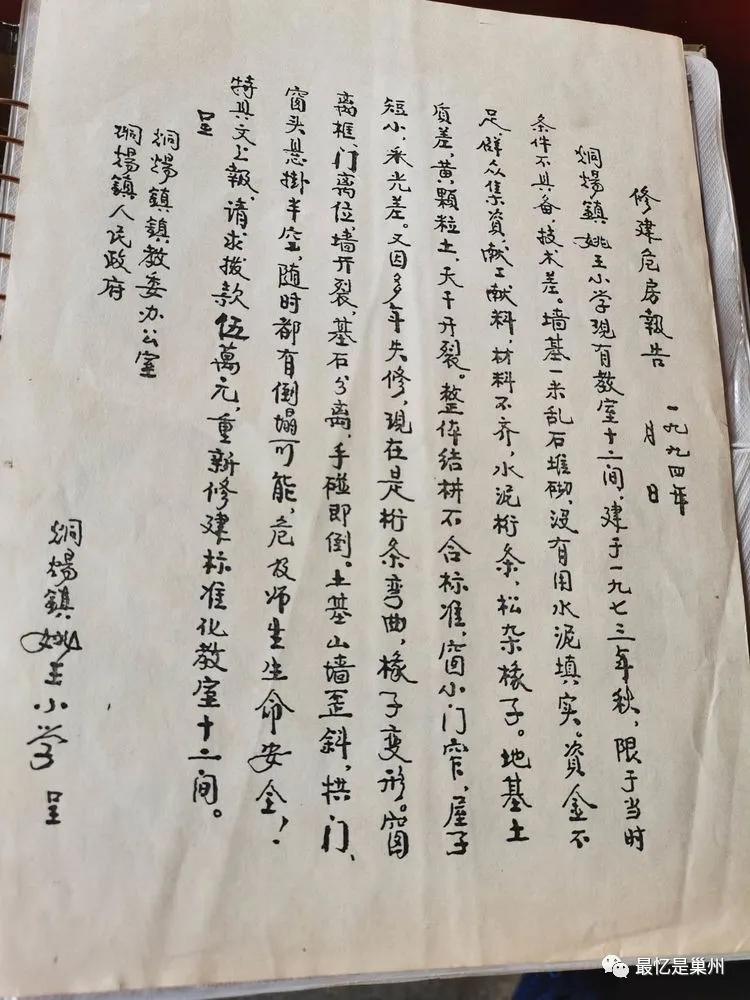 修建危房報告
一九九四年
月 日
烔煬鎮姚王小学现有教室十二间，建于一九七三年秋，限于当时
条件不具备，技术差。墙基一米乱石堆砌，没有用水泥填实。资金不
足，群众集资，献工献料，材料不齐，水泥桁条，松杂椽子。地基土
质差，黄颗粒土，天干开裂。整体结构不合标准，窗小门窄，屋子
短小，采光差。又因多年失修，现在是桁条弯曲，椽子变形。窗
离框，门离位，墙开裂，基石分离，手碰即倒。土基山墙歪斜，拱门、
窗头悬掛半空，随时都有倒塌可能，危及师生生命安全！
特具文上報，请求拨款伍萬元，重新修建标准化教室十二间。
呈
烔煬鎮鎮教委办公室
烔煬鎮人民政府
烔煬鎮姚王小学 呈
最忆是巢州